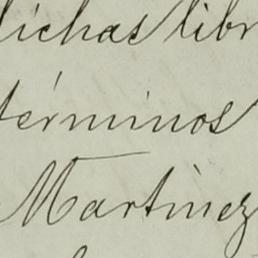 dichas libr
términos
Martinez